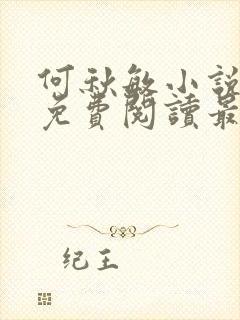 何秋敏小說
免費閱讀最
纪王